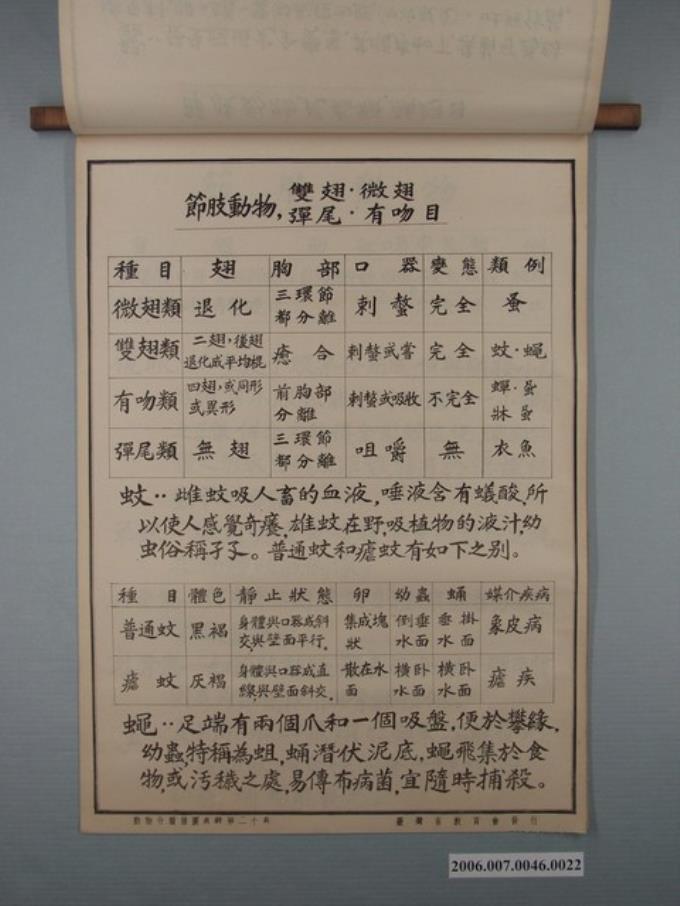 節肢動物, 雙翅·微翅
彈尾·有吻目
種目 翅 胸部 口器 變態 類例
微翅類 退化 三環節都分離 刺螫 完全 蚤
雙翅類 二翅,後翅退化成平均棍 癒合 刺螫或嘗 完全 蚊·蠅
有吻類 四翅,或同形或異形 前胸部分離 刺螫或吸收 不完全 蟬·蝨 牀蝨
彈尾類 無翅 三環節都分離 咀嚼 無 衣魚
蚊‥雌蚊吸人畜的血液,唾液含有蟻酸,所
以使人感覺奇癢,雄蚊在野,吸植物的液汁,幼
虫俗稱孑孓。普通蚊和瘧蚊有如下之别。
種目 體色 靜止狀態 卵 幼蟲 蛹 媒介疾病
普通蚊 黑褐 身體與口器成斜交,與壁面平行。 集成塊狀 倒垂水面 垂掛水面 象皮病
瘧蚊 灰褐 身體與口器成直線,與壁面斜交。 散在水面 橫卧水面 橫卧水面 瘧疾
蠅‥足端有兩個爪和一個吸盤,便於攀緣,
幼蟲,特稱為蛆,蛹潛伏泥底,蠅飛集於食
物,或汚穢之處,易傳布病菌,宜隨時捕殺。
臺灣省教育會發行
2006.007.0046.0022